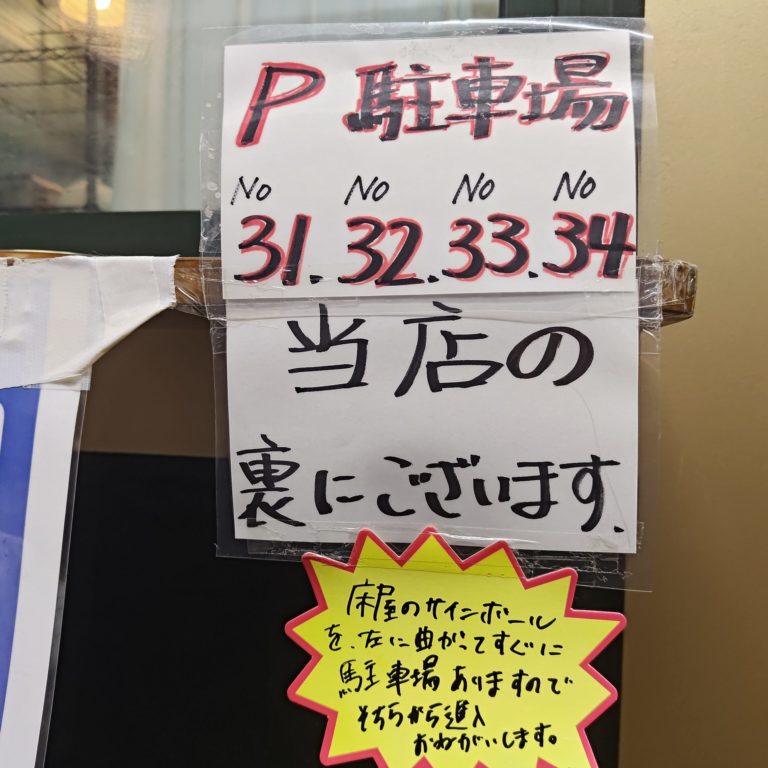 P 駐車場
No No No No
31.32.33.34
当店の
裏にございます.
床屋のサインポール
を、左に曲がってすぐに
駐車場ありますので
そちらから進入
おねがいします。